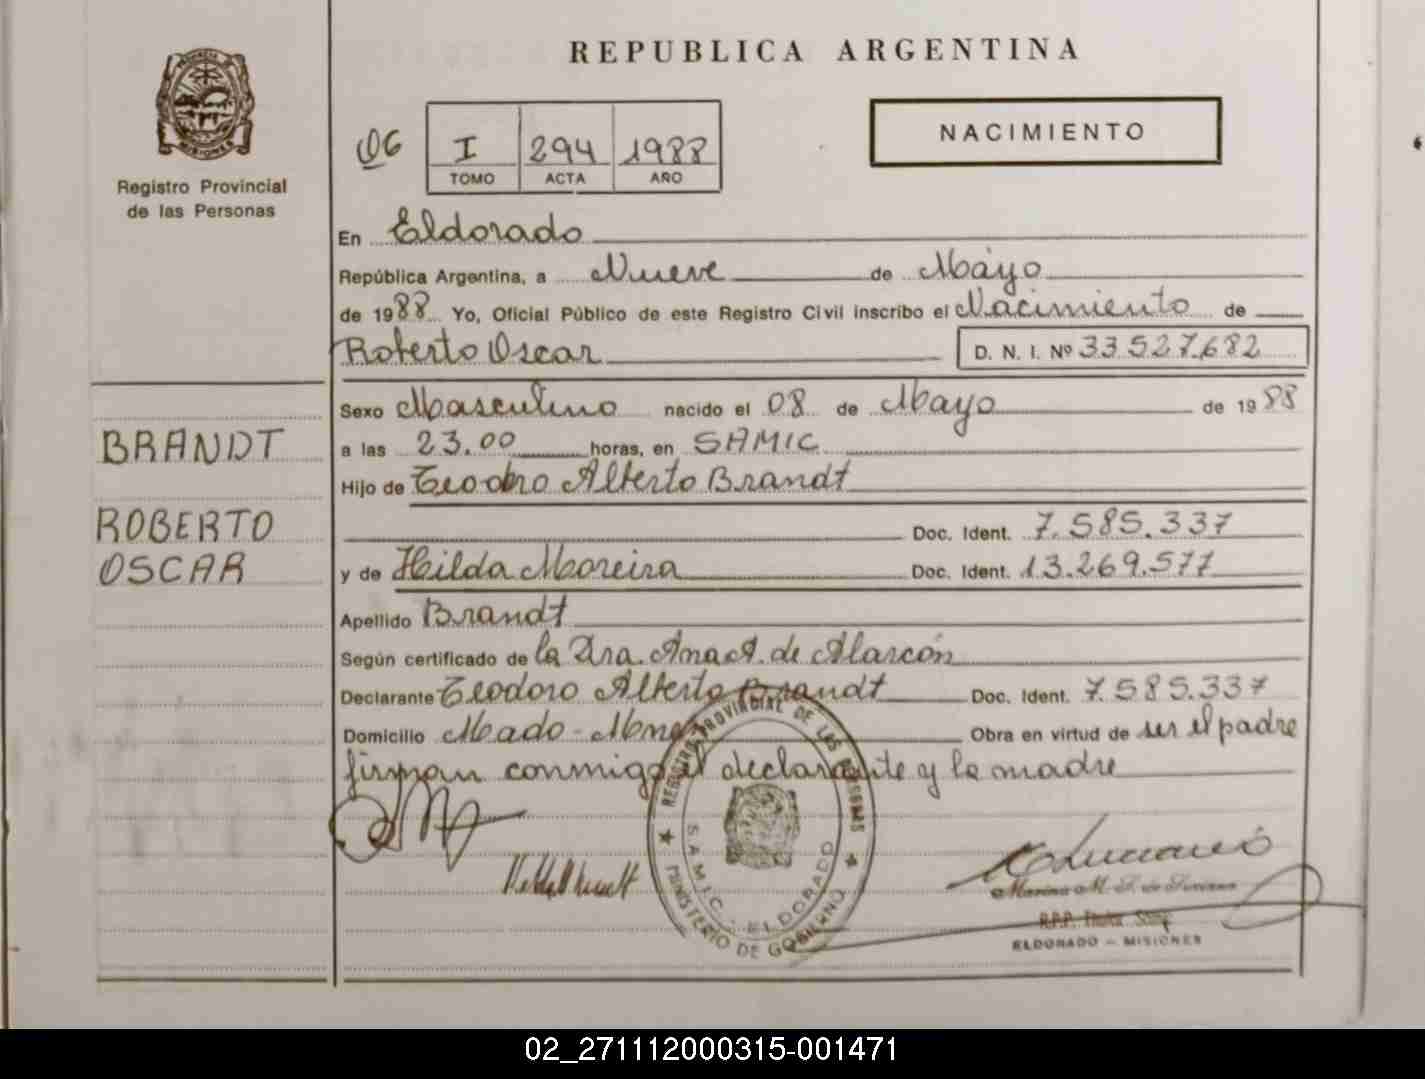 REPUBLICA ARGENTINA
PROVINCIA DE MISIONES
Registro Provincial
de las Personas
06
I 294 1988
TOMO ACTA AÑO
NACIMIENTO
En Eldorado
República Argentina, a Nueve de Mayo
de 1988 Yo, Oficial Público de este Registro Civil inscribo el Nacimiento de
Roberto Oscar D. N. I. Nº 33.527.682
Sexo Masculino nacido el 08 de Mayo de 1988
BRANDT
a las 23.00 horas, en SAMIC
Hijo de Teodoro Alberto Brandt
ROBERTO
OSCAR
Doc. Ident. 7.585.337
y de Hilda Moreira Doc. Ident. 13.269.577
Apellido Brandt
Según certificado de la Dra. Ana A. de Alarcón
Declarante Teodoro Alberto Brandt Doc. Ident. 7.585.337
Domicilio Mado - Mnes Obra en virtud de ser el padre
firman conmigo el declarante y la madre
REGISTRO PROVINCIAL DE LAS PERSONAS
S.A.M.I.C. - ELDORADO
MINISTERIO DE GOBIERNO
R.P.P.
ELDORADO - MISIONES
02_271112000315-001471